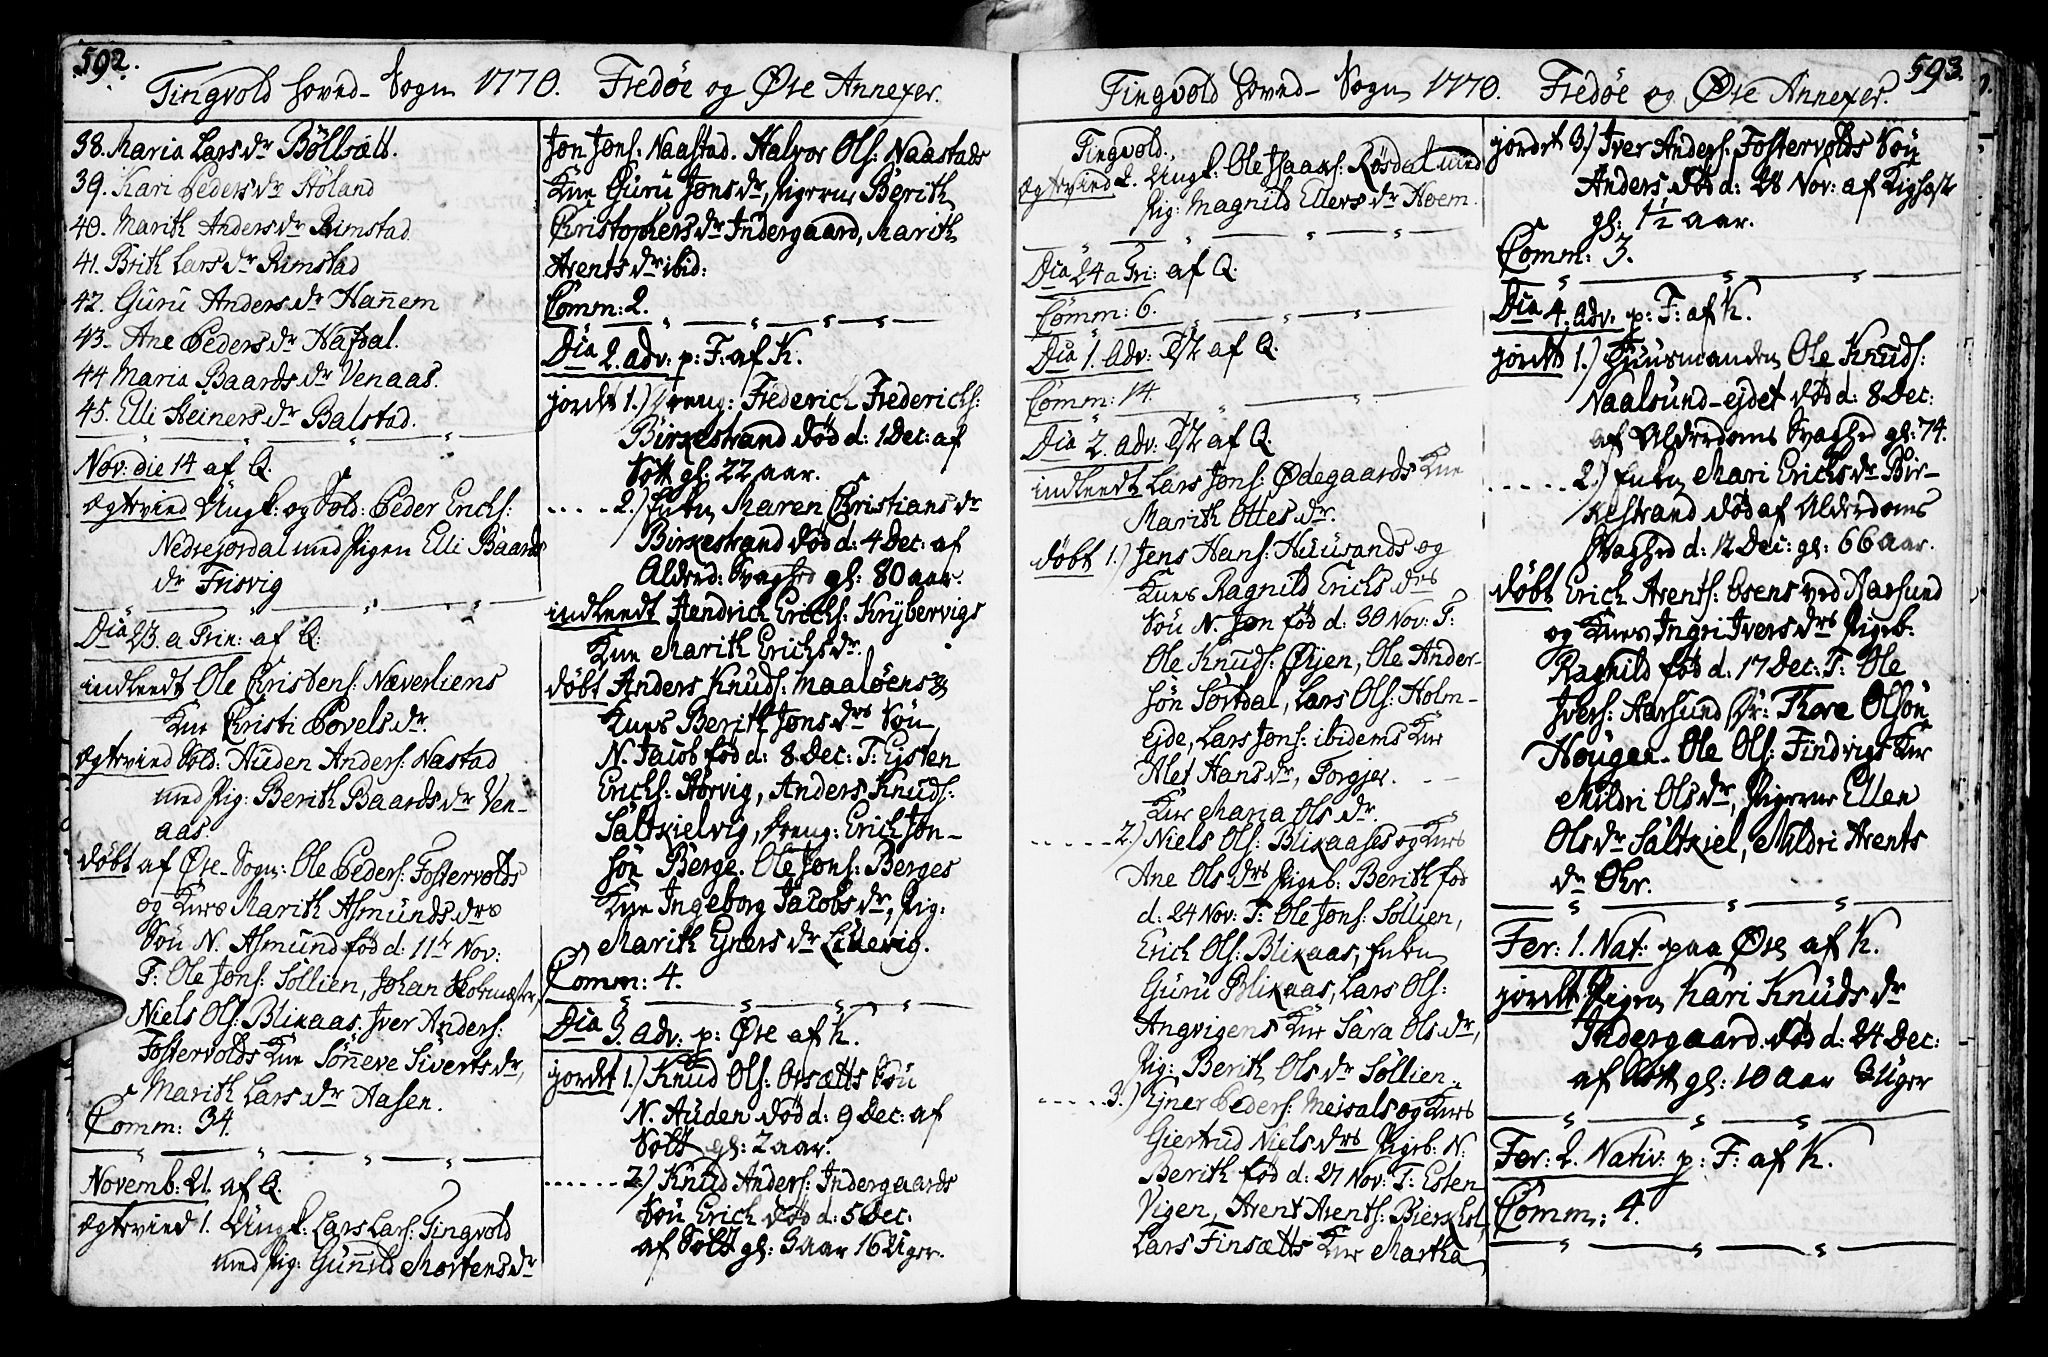 592.
Tingvold Hoved-Sogn 1770. Fredøe og Øre Annexer.
38. Maria Lars dr Böllsætt.
39. Kari Peders dr Høland
40. Marith Anders dr Rimstad
41. Brith Lars dr Rimstad
42. Guru Anders dr Hañem
43. Ane Peders dr Hafdal.
44 Maria Baards dr Venaas.
45. Elli Steiners dr Balstad.
Nov: die 14 af Q.
ægtevied Ungk: og Sold: Peder Erichs:
Nedrejordal med Pigen Elli Baards
dr Frisvig
Dia 23. a Trin: af Q:
indleedt Ole Christens: Næverliens
Kue Christi Povels dr.
ægteviedsold: Auden Anders: Nastad
med Pig: Berith Baards dr Ven-
aas
døbt af Øre-Sogn: Ole Peders: Fostervolds
og Kurs Marith Asmunds drs
Søn N. Asmund fød d: 11te Nov:
T: Ole Jøns: Sollien, Johan
Niels Ols: Blikaas. Iver Anders:
Fostervolds Kue Söñeve Siverts dr,
Marith Lars dr Aasen.
Comm: 34.
Novemb: 21. af Q.
ægtevied 1. Ungk: Lars Lars: Tingvold
med Pig: Guñild Mortens dr
Jøn Jøns: Naastad. Halvor Ols: Naastads
Kue Guru Jøns dr, Pigerne Berith
Christophers dr Indergaard, Marith
Arents dr ibid:
Comm: 2.
Dia 2. adv: p: F: af K.
jordet 1.) Dreng: Frederich Frederichs:
Birkestrand død d: 1 Dec: af
Sott gl: 22 aar.
2.) Enken Maren Christians dr
Birkestrand død d: 4 Dec: af
Alderd: Svaghed gl: 80 aar.
indleedt Hendrich Erichs: Krÿbervigs
Kue Marith Erichs dr.
døbt Anders Knuds: Maaløens &
Kues Berith Jøns drs Søn
N. Jacob fød d: 8 Dec: T: Ejsten
Erichs: Hørvig, Anders Knuds:
Saltkielvig, dreng: Erich Jøn-
søn Berge. Ole Jøns: Berges
Kue Ingeborg Jacobs dr, Pig:
Marith Ejners dr Lillevig.
Comm: 4.
Dia 3. adv: p: Øre af K.
jordet 1.) Knud Ols: Orsætts Søn
N. Auden død d: 9 Dec: af
Sott gl: 2 aar.
2.) Knud Anders: Indergaards
Søn Erich død d: 5 Dec:
af Sott gl: 3 aar 16 Uger.
593.
Tingvold Hoved-Sogn 1770. Fredøe og Øre Annexer.
Tingvold.
ægteviedt 2. Ungk: Ole Isaaks: Røsdal med
Pig: Magnild Ellevs dr Hoem.
Dia 24 a Tri: af Q.
Comm: 6.
Dia 1. Adv: af Q.
Comm: 14.
Dia 2. adv: af Q.
indleedt Lars Jøns: Ødegaards Kue
Marith Ottes dr.
døbt 1.) Jens Hans: Huusands og
Kues Ragnild Erichs drs
Søn N. Jøn fød d: 30 Nov: T:
Ole Knuds: Øÿen, Ole Ander-
søn Sørdal, Lars Ols: Holm-
ejde, Lars Jøns: ibidems Kue
Alet Hans dr, Torgjer.
Kue Maria Ols dr.
2.) Niels Ols: Blikaases og Kues
Ane Ols drs Pigeb: Berith fød
d: 24 Nov: T: Ole Jøns: Sollien,
Erich Ols: Blikaas, Enken
Guru Blikaas, Lars Ols:
Angvigens Kue Sara Ols dr,
Pig: Berith Ols dr Søllien.
3.) Ejner Peders: Meisals og Kues
Giertrud Niels drs Pigeb: N:
Berith fød d: 27 Nov: T: Esten
Vigen, Arent Arents:
Lars Finsætts Kue Martha
jordet 3.) Iver Anders: Fostervolds Søn
Anders død d: 28 Nov: af Kighoste
gl: 1½ aar.
Comm: 3.
Dia 4. adv. p: F: af K.
jordet 1.) Huusmanden Ole Knuds:
Naalsund-ejdet død d: 8 Dec:
af Alderdoms Svaghed gl: 74.
2.) Enken Mari Erichs dr Bir-
kestrand død af Alderdoms
Svaghed d: 12 Dec: gl: 66 aar.
døbt Erich Arents: Osens ved Aarsund
og Kues Ingri Ivers drs Pigeb:
Ragnild fød d: 17 Dec: T: Ole
Ivers: Aarsund Dr: Thore Olsøn
Hougen. Ole Ols: Findvigs Kue
Mildri Ols dr, Pigerne Ellen
Ols dr Saltkiel, Mildri Arents
dr Ohr.
Fer: 1. Nat: paa Øre af K.
jordet Pigen Kari Knuds dr
Indergaard. død d: 24 Dec:
af Sott gl: 10 aar 3 Uger
Fer: 2. Nativ: p: F: af K.
Comm: 4.